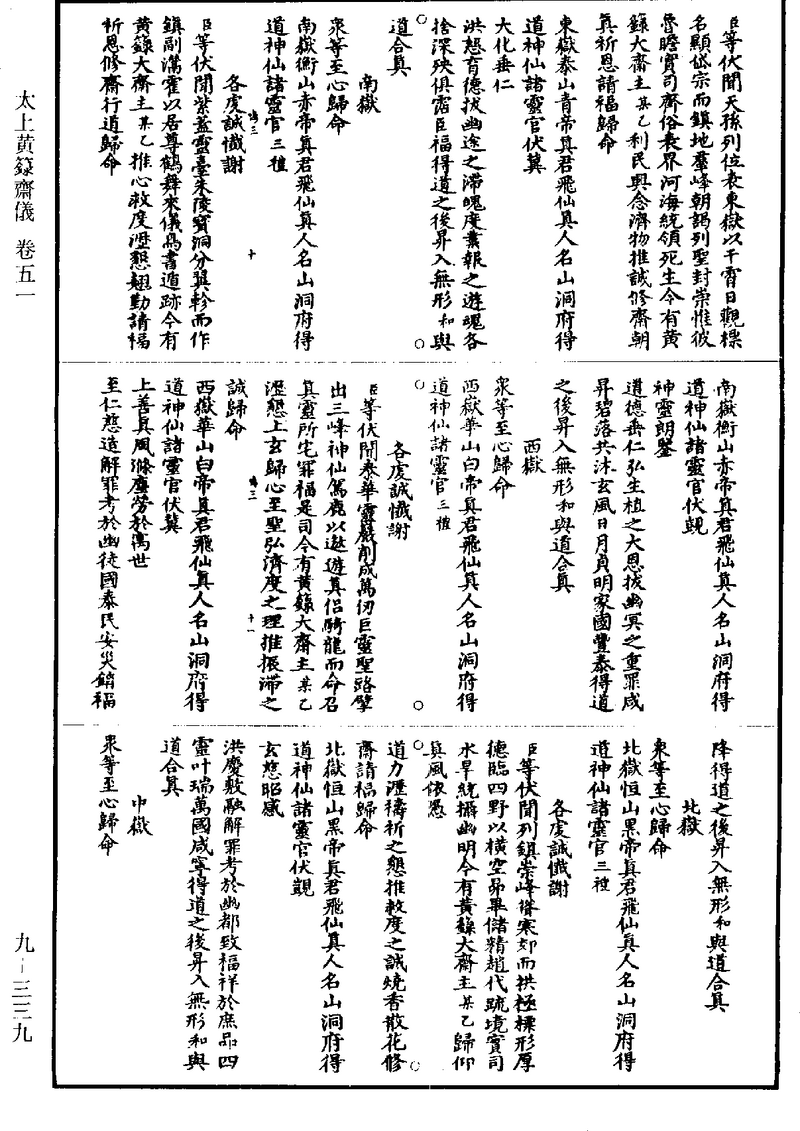 臣等伏聞天孫列位表東嶽以干霄日觀標
名顯岱宗而鎮地羣峰朝謁列聖封崇惟彼
魯瞻實司齊俗表界河海統領死生今有黃
籙大齋主某乙利民興念濟物推誠修齋朝
真祈恩請福歸命
東嶽泰山青帝真君飛仙真人名山洞府得
道神仙諸靈官伏冀
大化垂仁
洪慈育德拔幽途之滯魄度業報之遊魂各
捨深殃俱霑巨福得道之後昇入無形和與
道合真
南嶽
衆等至心歸命
南嶽衡山赤帝真君飛仙真人名山洞府得
道神仙諸靈官三禮
各虔誠懺謝
臣等伏聞紫蓋靈臺朱陵寶洞分翼軫而作
鎮副灊霍以居尊鶴舞來儀烏書遁跡今有
黃籙大齋主某乙推心救度瀝懇翹勤請福
祈恩修齋行道歸命
南嶽衡山赤帝真君飛仙真人名山洞府得
道神仙諸靈官伏覬
神靈朗鑒
道德垂仁弘生植之大恩拔幽冥之重罪咸
昇碧落共沐玄風日月貞明家國豐泰得道
之後昇入無形和與道合真
西嶽
衆等至心歸命
西嶽華山白帝真君飛仙真人名山洞府得
道神仙諸靈官三禮
各虔誠懺謝
臣等伏聞泰華靈巖削成萬仞巨靈聖路擘
出三峰神仙駕鹿以遨遊真侶騎龍而命召
真靈所宅罪福是司今有黃籙大齋主某乙
瀝懇上玄歸心至聖弘濟度之理推振滯之
誠歸命
西嶽華山白帝真君飛仙真人名山洞府得
道神仙諸靈官伏冀
上善真風滌塵勞於萬世
至仁慈造解罪考於幽徒國泰民安災銷福
降得道之後昇入無形和與道合真
北嶽
衆等至心歸命
北嶽恒山黑帝真君飛仙真人名山洞府得
道神仙諸靈官三禮
各虔誠懺謝
臣等伏聞列鎮崇峰偉寒郊而拱極標形厚
德臨四野以橫空昴畢儲精趙代疏境實司
水旱統攝幽明今有黃籙大齋主某乙歸仰
真風依慿
道力瀝禱祈之懇推救度之誠燒香散花修
齋請福歸命
北嶽恒山黑帝真君飛仙真人名山洞府得
道神仙諸靈官伏覬
玄慈昭感
洪慶敷融解罪考於幽都致福祥於庶品四
靈叶瑞萬國咸寧得道之後昇入無形和與
道合真
中嶽
衆等至心歸命
太上黃籙齋儀 卷五一
九—三三九